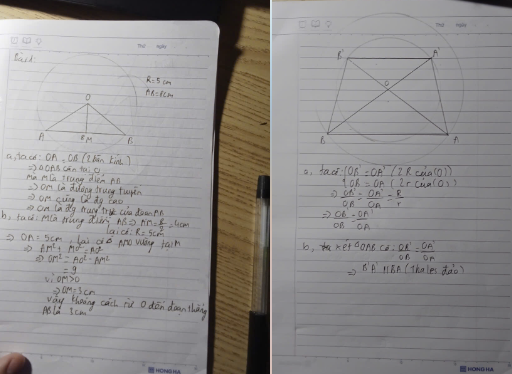 Thứ Ngày
Bài 1:
R = 5cm
AB = 8cm
O
A M B
a, ta có: OA = OB (2 bán kính)
⇒ ΔOAB cân tại O
Mà M là trung điểm AB
⇒ OM là đường trung tuyến
⇒ OM cũng là đg cao
⇒ OM là đg trung trực của đoạn AB
b, ta có: M là trung điểm AB ⇒ AM = = 4cm
lại có: R = 5cm
⇒ OA = 5cm, lại có Δ AMO vuông tại M
⇒ AM² + MO² = AO²
⇒ OM² = AO² - AM²
= 9
vì OM > 0
⇒ OM = 3cm
vậy khoảng cách từ O đến đoạn thẳng
AB là 3cm
HONG HA
Thứ Ngày
B' A'
O
B A
a, ta có: {OB' = OA' (2R của (O))
{OB = OA (2r của (O))
⇒ OB'/OB = OA'/OA = R/r
⇒ OB'/OB = OA'/OA
b, xét ΔOAB có: OB'/OB = OA'/OA
⇒ B'A' // BA (Thales đảo)
HONG HA